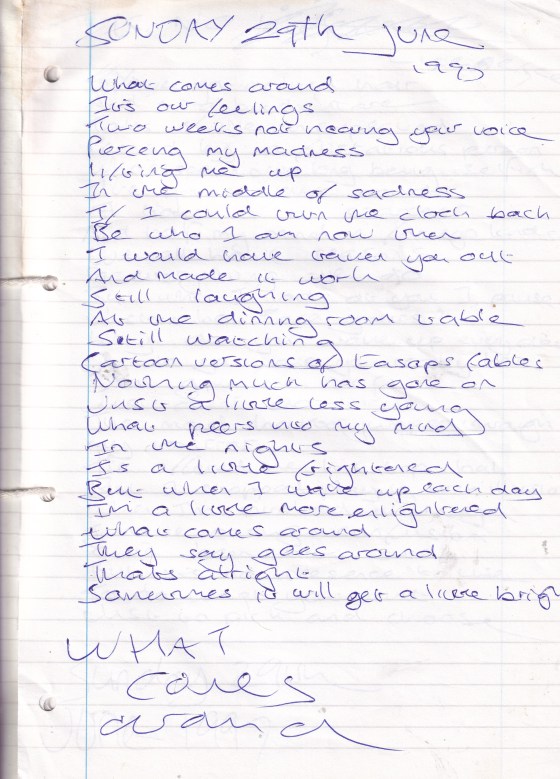 SUNDAY 29th June
1997
What comes around
It's our feelings
Two weeks not hearing your voice
Piercing my madness
Lifting me up
In the middle of sadness
If I could turn the clock back
Be who I am now then
I would have taken you out
And made it work
Still laughing
At the dinning room table
Still watching
Cartoon versions of Easaps fables
Nothing much has gone on
Just a little less young
What peers into my mind
In the nights
Is a little frightened
But when I wake up each day
I'm a little more enlightened
What comes around
They say goes around
Thats alright
Sometimes it will get a little brig
WHAT
Comes
around